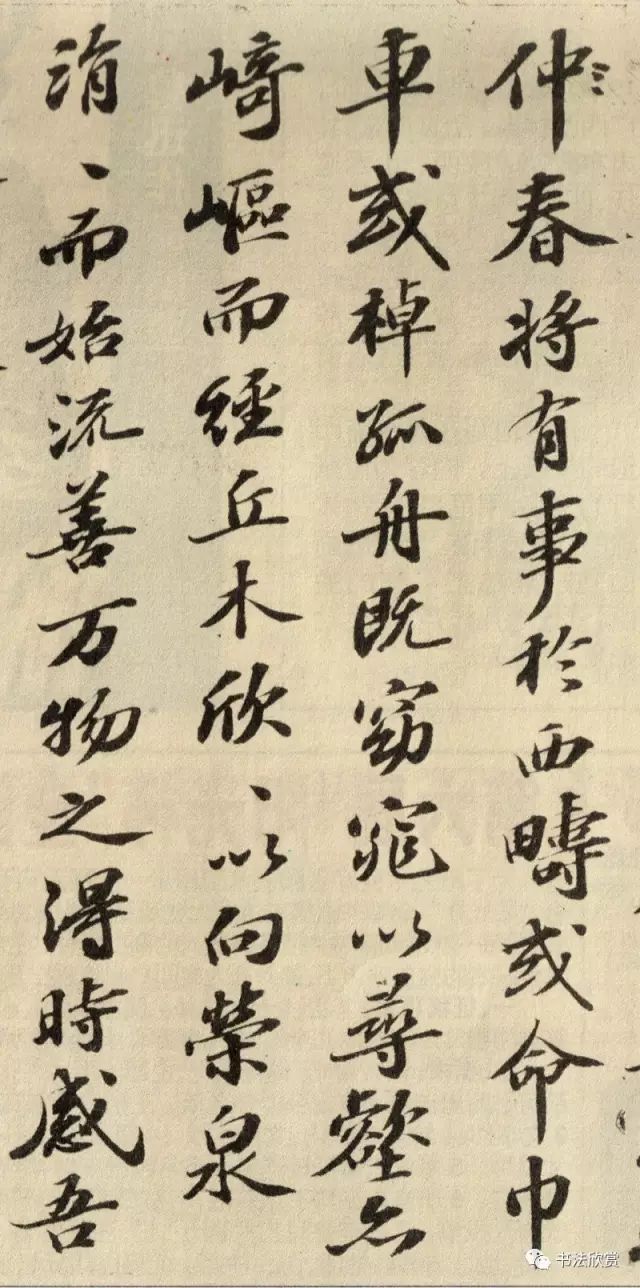 仲春將有事於西疇或命巾
車或棹孤舟既窈窕以尋壑亦
崎嶇而經丘木欣、以向榮泉
涓、而始流善万物之得時感吾
书法欣赏